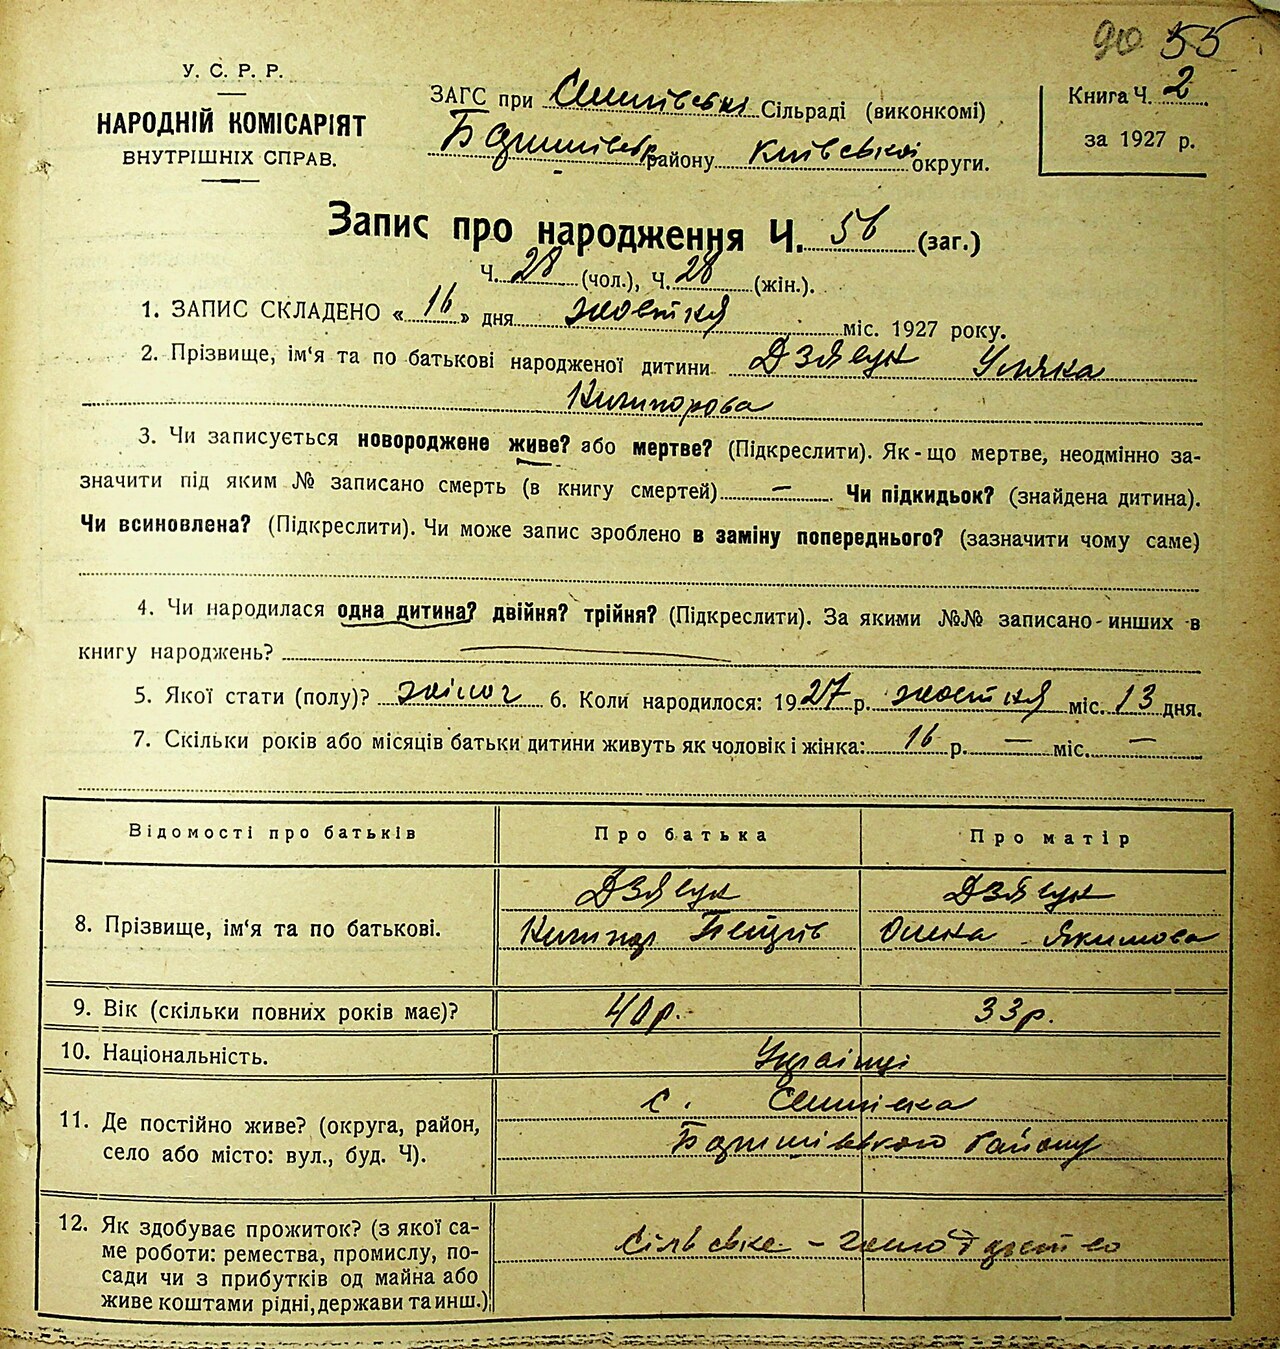 до 55
У. С. Р. Р.
НАРОДНІЙ КОМІСАРІЯТ
ВНУТРІШНІХ СПРАВ.
ЗАГС при Сільраді (виконкомі)
району Київської округи.
Книга Ч. 2
за 1927 р.
Запис про народження Ч. 56 (заг.)
Ч. 28 (чол.), Ч. 28 (жін.).
1. ЗАПИС СКЛАДЕНО « 16 » дня жовтня міс. 1927 року.
2. Прізвище, ім‘я та по батькові народженої дитини Дзявун
Кипиорова
3. Чи записується новороджене живе? або мертве? (Підкреслити). Як-що мертве, неодмінно за-
значити під яким № записано смерть (в книгу смертей) — Чи підкидьок? (знайдена дитина).
Чи всиновлена? (Підкреслити). Чи може запис зроблено в заміну попереднього? (зазначити чому саме)
4. Чи народилася одна дитина? двійня? трійня? (Підкреслити). За якими №№ записано-инших в
книгу народжень?
5. Якої стати (полу)? жіноч 6. Коли народилося: 1927 р. жовтня міс. 13 дня.
7. Скільки років або місяців батьки дитини живуть як чоловік і жінка: 16 р. — міс. —
Відомості про батьків
Про батька
Про матір
8. Прізвище, ім‘я та по батькові.
Олена Якимова
9. Вік (скільки повних років має)?
40р.
33р.
10. Національність.
Українці
11. Де постійно живе? (округа, район,
село або місто: вул., буд. Ч).
с.
Району
12. Як здобуває прожиток? (з якої са-
ме роботи: ремества, промислу, по-
сади чи з прибутків од майна або
живе коштами рідні, держави та инш.)
сільське - господарство